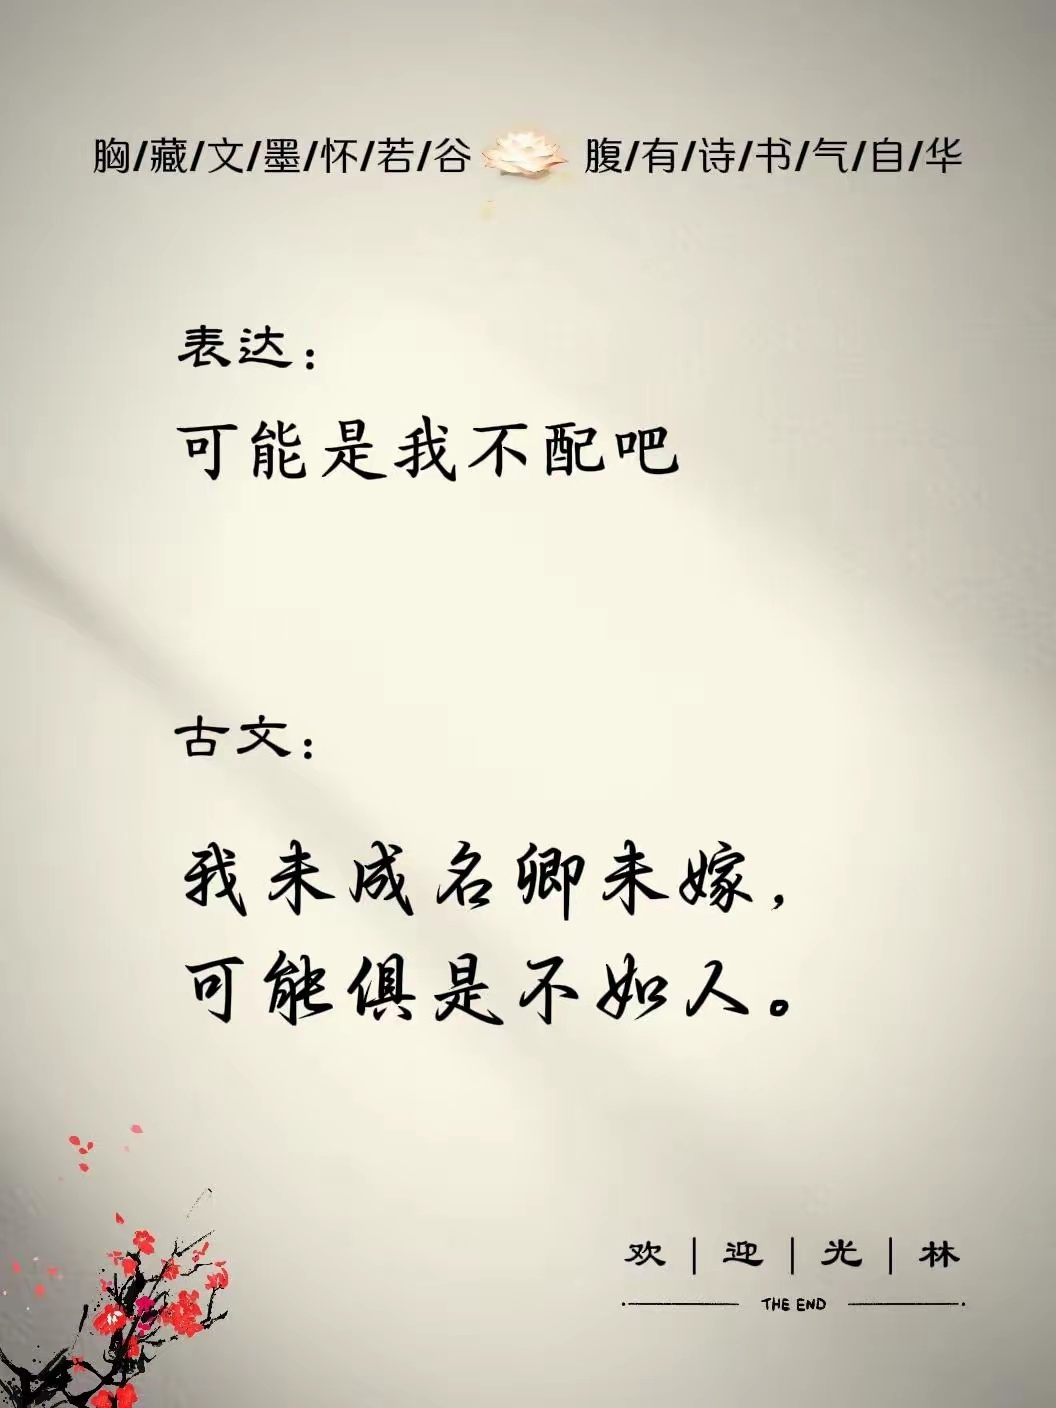 胸/藏/文/墨/怀/若/谷 腹/有/诗/书/气/自/华
表达：
可能是我不配吧
古文：
我未成名卿未嫁，
可能俱是不如人。
欢|迎|光|林
THE END